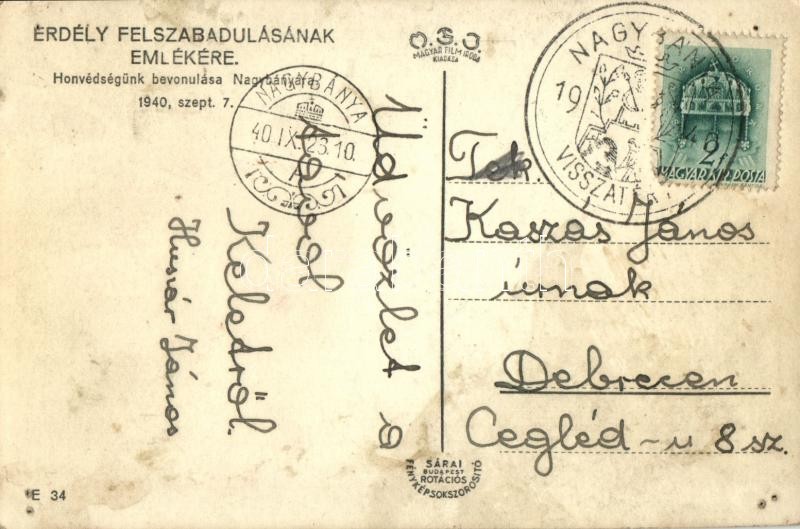 ERDÉLY FELSZABADULÁSÁNAK
EMLÉKÉRE.
Honvédségünk bevonulása Nagybányára
1940, szept. 7.
O.S.J.
MAGYAR FILM IRODA
KIADÁSA
NAGYBÁNYA
40.IX.23.10.
A
NAGYBÁNYA
19 40
VISSZATÉRT
2f
MAGYAR KIR. POSTA
Üdvözlet a
távol
Keletről.
Huszár János
Tek.
Kaszás János
úrnak
Debrecen
Cegléd-u 8 sz.
SÁRAI
BUDAPEST
ROTÁCIÓS
FÉNYKÉPSOKSZOROSÍTÓ
E 34